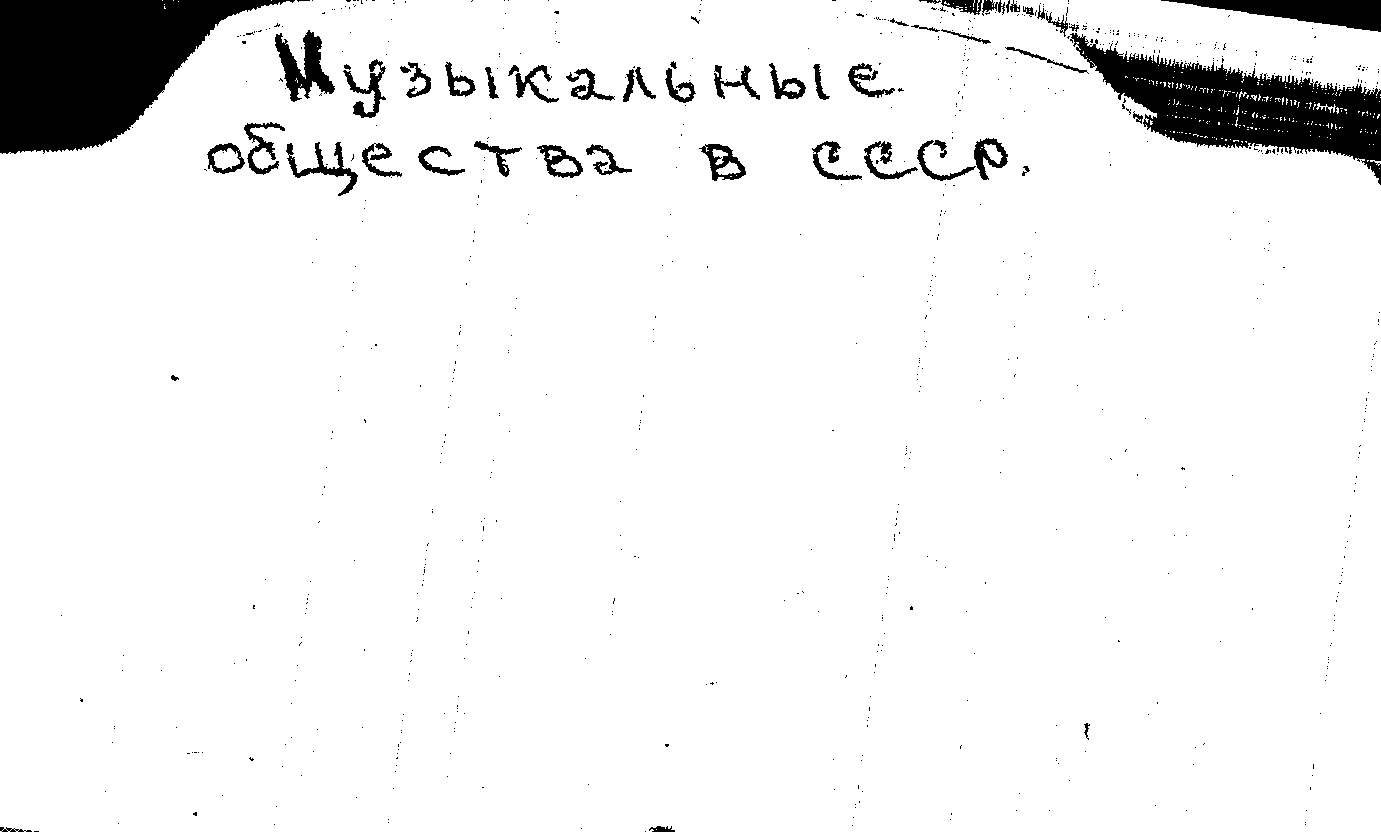 Музыкальные
общества в СССР.